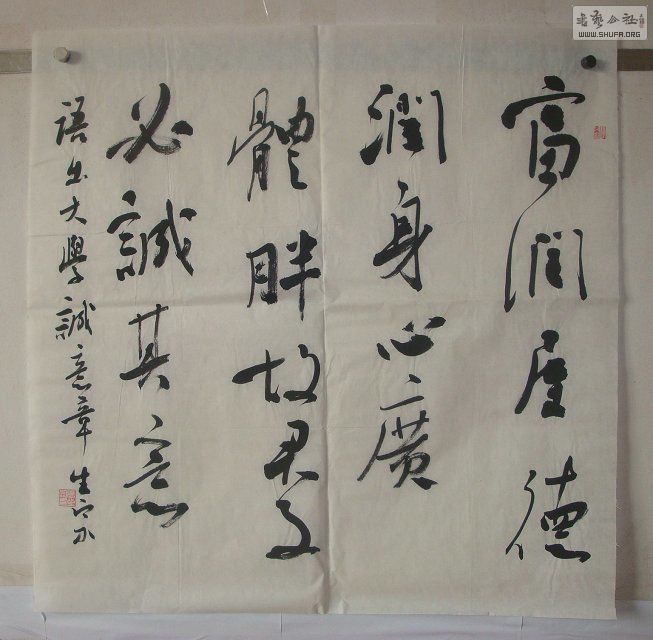 富润屋德
潤身心廣
體胖故君子
必誠其意
语出大學誠意章
書藝公社
WWW.SHUFA.ORG